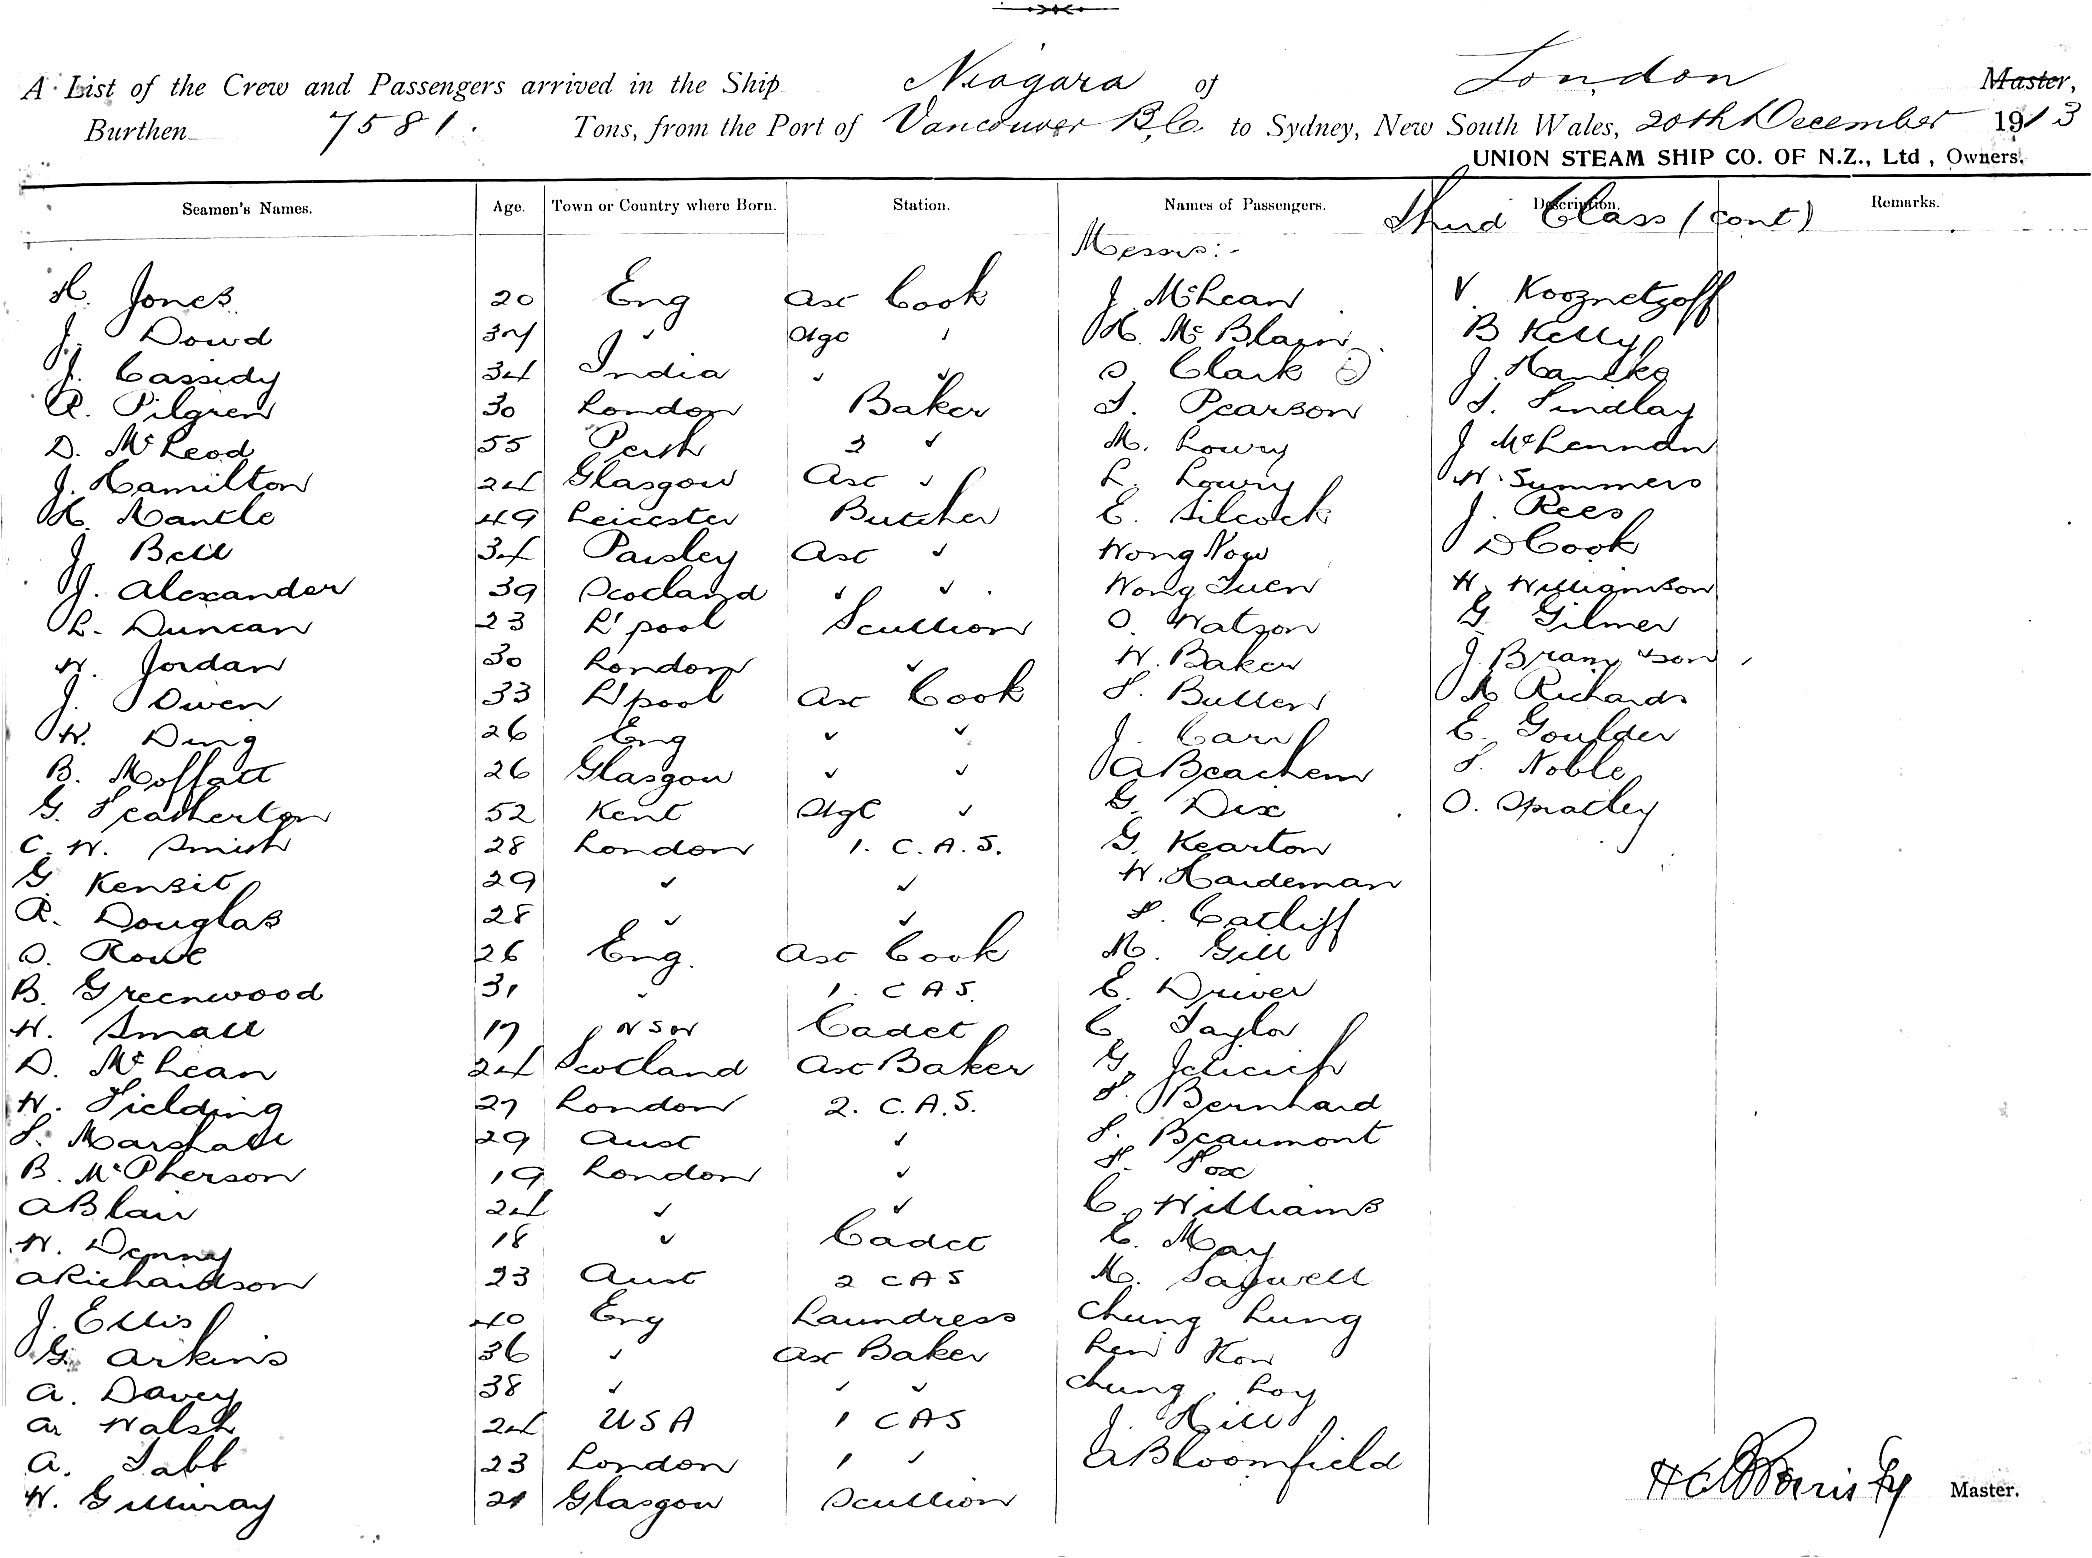 A List of the Crew and Passengers arrived in the Ship Niagara of London Master,
Burthen 7581. Tons, from the Port of Vancouver B.C. to Sydney, New South Wales, 20th December 1913
UNION STEAM SHIP CO. OF N.Z., Ltd, Owners.
Seamen's Names. Age. Town or Country where Born. Station. Names of Passengers. Description. Remarks.
Third Class (cont)
Messrs:-
H. Jones 20 Eng Asst Cook J. McLean V. Kooznetzoff
J. Dowd 37 ✓ Stge " H. McBlain B Kelly
J. Cassidy 34 India ✓ ✓ S. Clark J.
R. Pilgren 30 London Baker T. Pearson T. Findlay
D. McLeod 55 Perth 3 ✓ M. Lowry J McLennan
J. Hamilton 24 Glasgow Asst ✓ L. Lowry W. Summers
H. Mantle 49 Leicester Butcher E. Silcock J. Rees
J. Bell 34 Paisley Asst ✓ Wong Now D Cook
J. Alexander 39 Scotland ✓ ✓ Wong Tuen W. Williamson
L. Duncan 23 L'pool Scullion O. Watson G. Gilmer
W. Jordan 30 London ✓ W. Baker J.
J. Owen 33 L'pool Asst Cook F. Butler A Richards
W. Ding 26 Eng ✓ ✓ J. Carr E. Goulder
B. Moffatt 26 Glasgow ✓ ✓ A Beachem F. Noble
G. Featherton 52 Kent Stge ✓ G. Dix O. Spratley
C. W. Smith 28 London 1. C.A.S. G. Kearton
G. Kensit 29 ✓ ✓ W. Hardeman
R. Douglas 28 ✓ ✓ F. Catliff
S. Rowe 26 Eng. Asst Cook M. Gill
B. Greenwood 31 " 1. CAS. E. Driver
W. Small 17 NSW Cadet C. Taylor
D. McLean 24 Scotland Asst Baker G. Jelicich
W. Fielding 27 London 2. C.A.S. F. Bernhard
F. Marshall 29 Aust ✓ F. Beaumont
B. McPherson 19 London ✓ F. Fox
A Blair 24 ✓ ✓ C. Williams
W. Denny 18 ✓ Cadet E. May
A Richardson 23 Aust 2 CAS M. Sagwell
J. Ellis 40 Eng Laundress Chung Lung
G. Arkins 36 ✓ Asst Baker Len Kow
A. Davey 38 ✓ ✓ ✓ Chung Loy
A. Walsh 24 USA 1 CAS J. Hill
A. Tabb 23 London 1 ✓ A Bloomfield
W. Gilliway 21 Glasgow Scullion
Master.